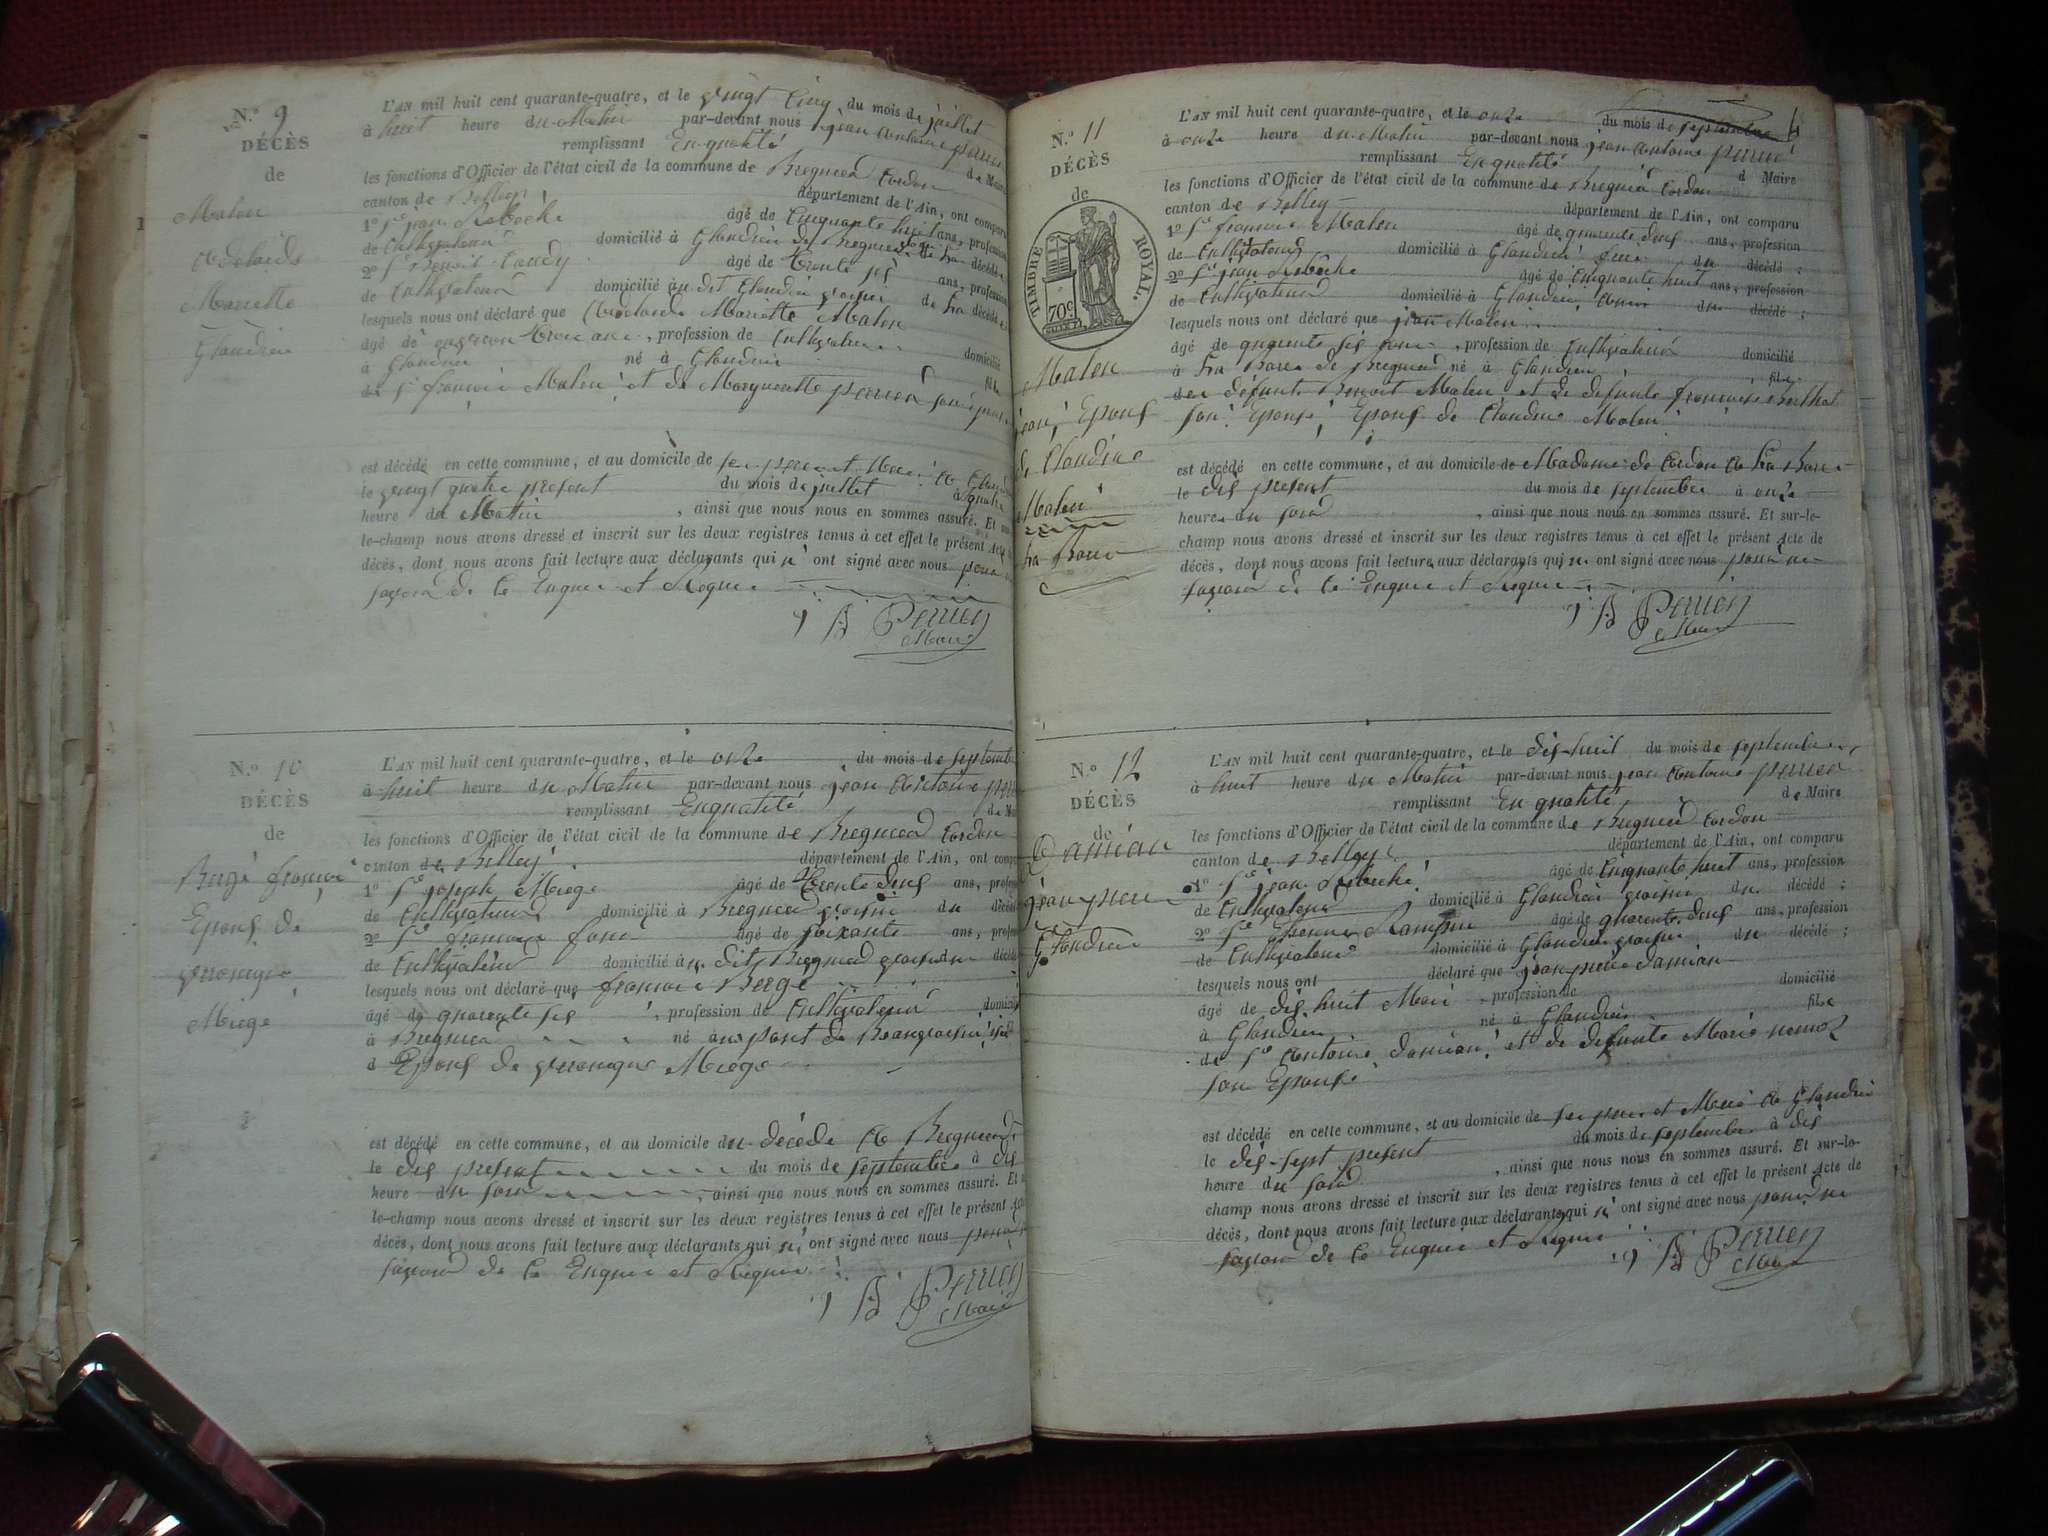 N.º 9
DÉCÈS
de
Malen
Adelaide
Mariette
Glandieu
L'AN mil huit cent quarante-quatre, et le vingt Cinq du mois de juillet
à huit heure du Matin par-devant nous jean antoine
remplissant En qualité de Maire
les fonctions d'Officier de l'état civil de la commune de Bregnier Cordon
canton de Belley département de l'Ain, ont comparu
1º Sr jean Rebèche âgé de Cinquante huit ans, profession
de Cultivateur domicilié à Glandieu de Bregnier décédé
2º Sr Benoit âgé de trente ans, profession
de Cultivateur domicilié au dit Glandieu voisin de la décédé
lesquels nous ont déclaré que Adelaide Mariette Malen
âgé de environ trois ans, profession de Cultivateur domicilié
à Glandieu né à Glandieu fil
de Sr françois Malen et de Marguerite
est décédé en cette commune, et au domicile de ses pere et Mere à
le vingt quatre présent du mois de juillet à quatre
heure du Matin, ainsi que nous nous en sommes assuré. Et
le-champ nous avons dressé et inscrit sur les deux registres tenus à cet effet le présent Acte
décès, dont nous avons fait lecture aux déclarants qui n' ont signé avec nous pour
savoir de ce Enquis et Requis
Maire
N.º 10
DÉCÈS
de
Bergé françois
Epoux de
veronique
Miege
L'AN mil huit cent quarante-quatre, et le onze du mois de septembre
à huit heure du Matin par-devant nous jean Antoine
remplissant En qualité de
les fonctions d'Officier de l'état civil de la commune de Bregnier Cordon
canton de Belley département de l'Ain, ont
1º Sr joseph Miege âgé de trente deux ans,
de Cultivateur domicilié à Bregnier voisin du
2º Sr françois âgé de soixante ans,
de Cultivateur domicilié au dit Bregnier voisin du
lesquels nous ont déclaré que françois Bergé
âgé de quarante six, profession de Cultivateur
à Bregnier né au pont de Beauvoisin
d Epoux de veronique Miege
est décédé en cette commune, et au domicile du décédé à Bregnier
le dix présent du mois de septembre à dix
heure du soir, ainsi que nous nous en sommes assuré. Et
le-champ nous avons dressé et inscrit sur les deux registres tenus à cet effet le présent
décès, dont nous avons fait lecture aux déclarants qui n' ont signé avec nous pour
savoir de ce Enquis et Requis
Maire
N.º 11
DÉCÈS
de
TIMBRE ROYAL.
70c
Malen
jean, Epoux
de Claudine
Malen
L'AN mil huit cent quarante-quatre, et le onze du mois de septembre
à onze heure du Matin par-devant nous jean antoine
remplissant En qualité d Maire
les fonctions d'Officier de l'état civil de la commune de Bregnier Cordon
canton de Belley département de l'Ain, ont comparu
1º Sr françois Malen âgé de quarante deux ans, profession
de Cultivateur domicilié à Glandieu du décédé ;
2º Sr jean Rebèche âgé de Cinquante huit ans, profession
de Cultivateur domicilié à Glandieu du décédé ;
lesquels nous ont déclaré que jean Malen
âgé de quarante six ans, profession de Cultivateur domicilié
à la Barre de Bregnier né à Glandieu, fils
de défunt Benoit Malen et de défunte françoise Berthet
son Epouse, Epoux de Claudine Malen
est décédé en cette commune, et au domicile de Madame de Cordon à la Barre
le dix présent du mois de septembre à onze
heure du soir, ainsi que nous nous en sommes assuré. Et sur-le-
champ nous avons dressé et inscrit sur les deux registres tenus à cet effet le présent Acte de
décès, dont nous avons fait lecture aux déclarants qui n' ont signé avec nous pour ne
savoir de ce Enquis et Requis
Maire
N.º 12
DÉCÈS
de
Damian
jean pierre
Glandieu
L'AN mil huit cent quarante-quatre, et le dix-huit du mois de septembre
à huit heure du Matin par-devant nous jean antoine
remplissant En qualité de Maire
les fonctions d'Officier de l'état civil de la commune de Bregnier Cordon
canton de Belley département de l'Ain, ont comparu
1º Sr jean Rebèche âgé de Cinquante huit ans, profession
de Cultivateur domicilié à Glandieu voisin du décédé ;
2º Sr âgé de quarante deux ans, profession
de Cultivateur domicilié à Glandieu voisin du décédé ;
lesquels nous ont déclaré que jean pierre damian
âgé de dix huit Mois profession de domicilié
à Glandieu né à Glandieu fils
de Sr Antoine damian et de défunte Marie
son Epouse
est décédé en cette commune, et au domicile de ses pere et Mere à Glandieu
le dix-sept présent du mois de septembre à dix
heure du soir, ainsi que nous nous en sommes assuré. Et sur-le-
champ nous avons dressé et inscrit sur les deux registres tenus à cet effet le présent Acte de
décès, dont nous avons fait lecture aux déclarants qui n' ont signé avec nous pour ne
savoir de ce Enquis et Requis
Maire